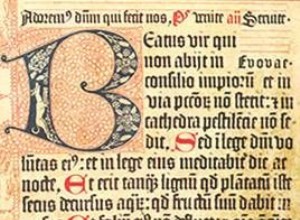 Adorem⁹ dñm qui fecit nos, Ps̄ venite añ Servite.
Beatus vir qui
non abijt in Evovae
consilio impioꝝ: et in
via pctõꝝ nõ stetit: ⁊ in
cathedra pestilẽcie nõ se-
dit. Sed ĩ lege dñi vo
lũtas ei⁹: et in lege eius meditabit̃ die ac
nocte. Et erit tanq̃ lignũ qd̃ plãtatũ iste
secus decursus aq̃ꝝ: qd̃ fructũ suũ dabit: in